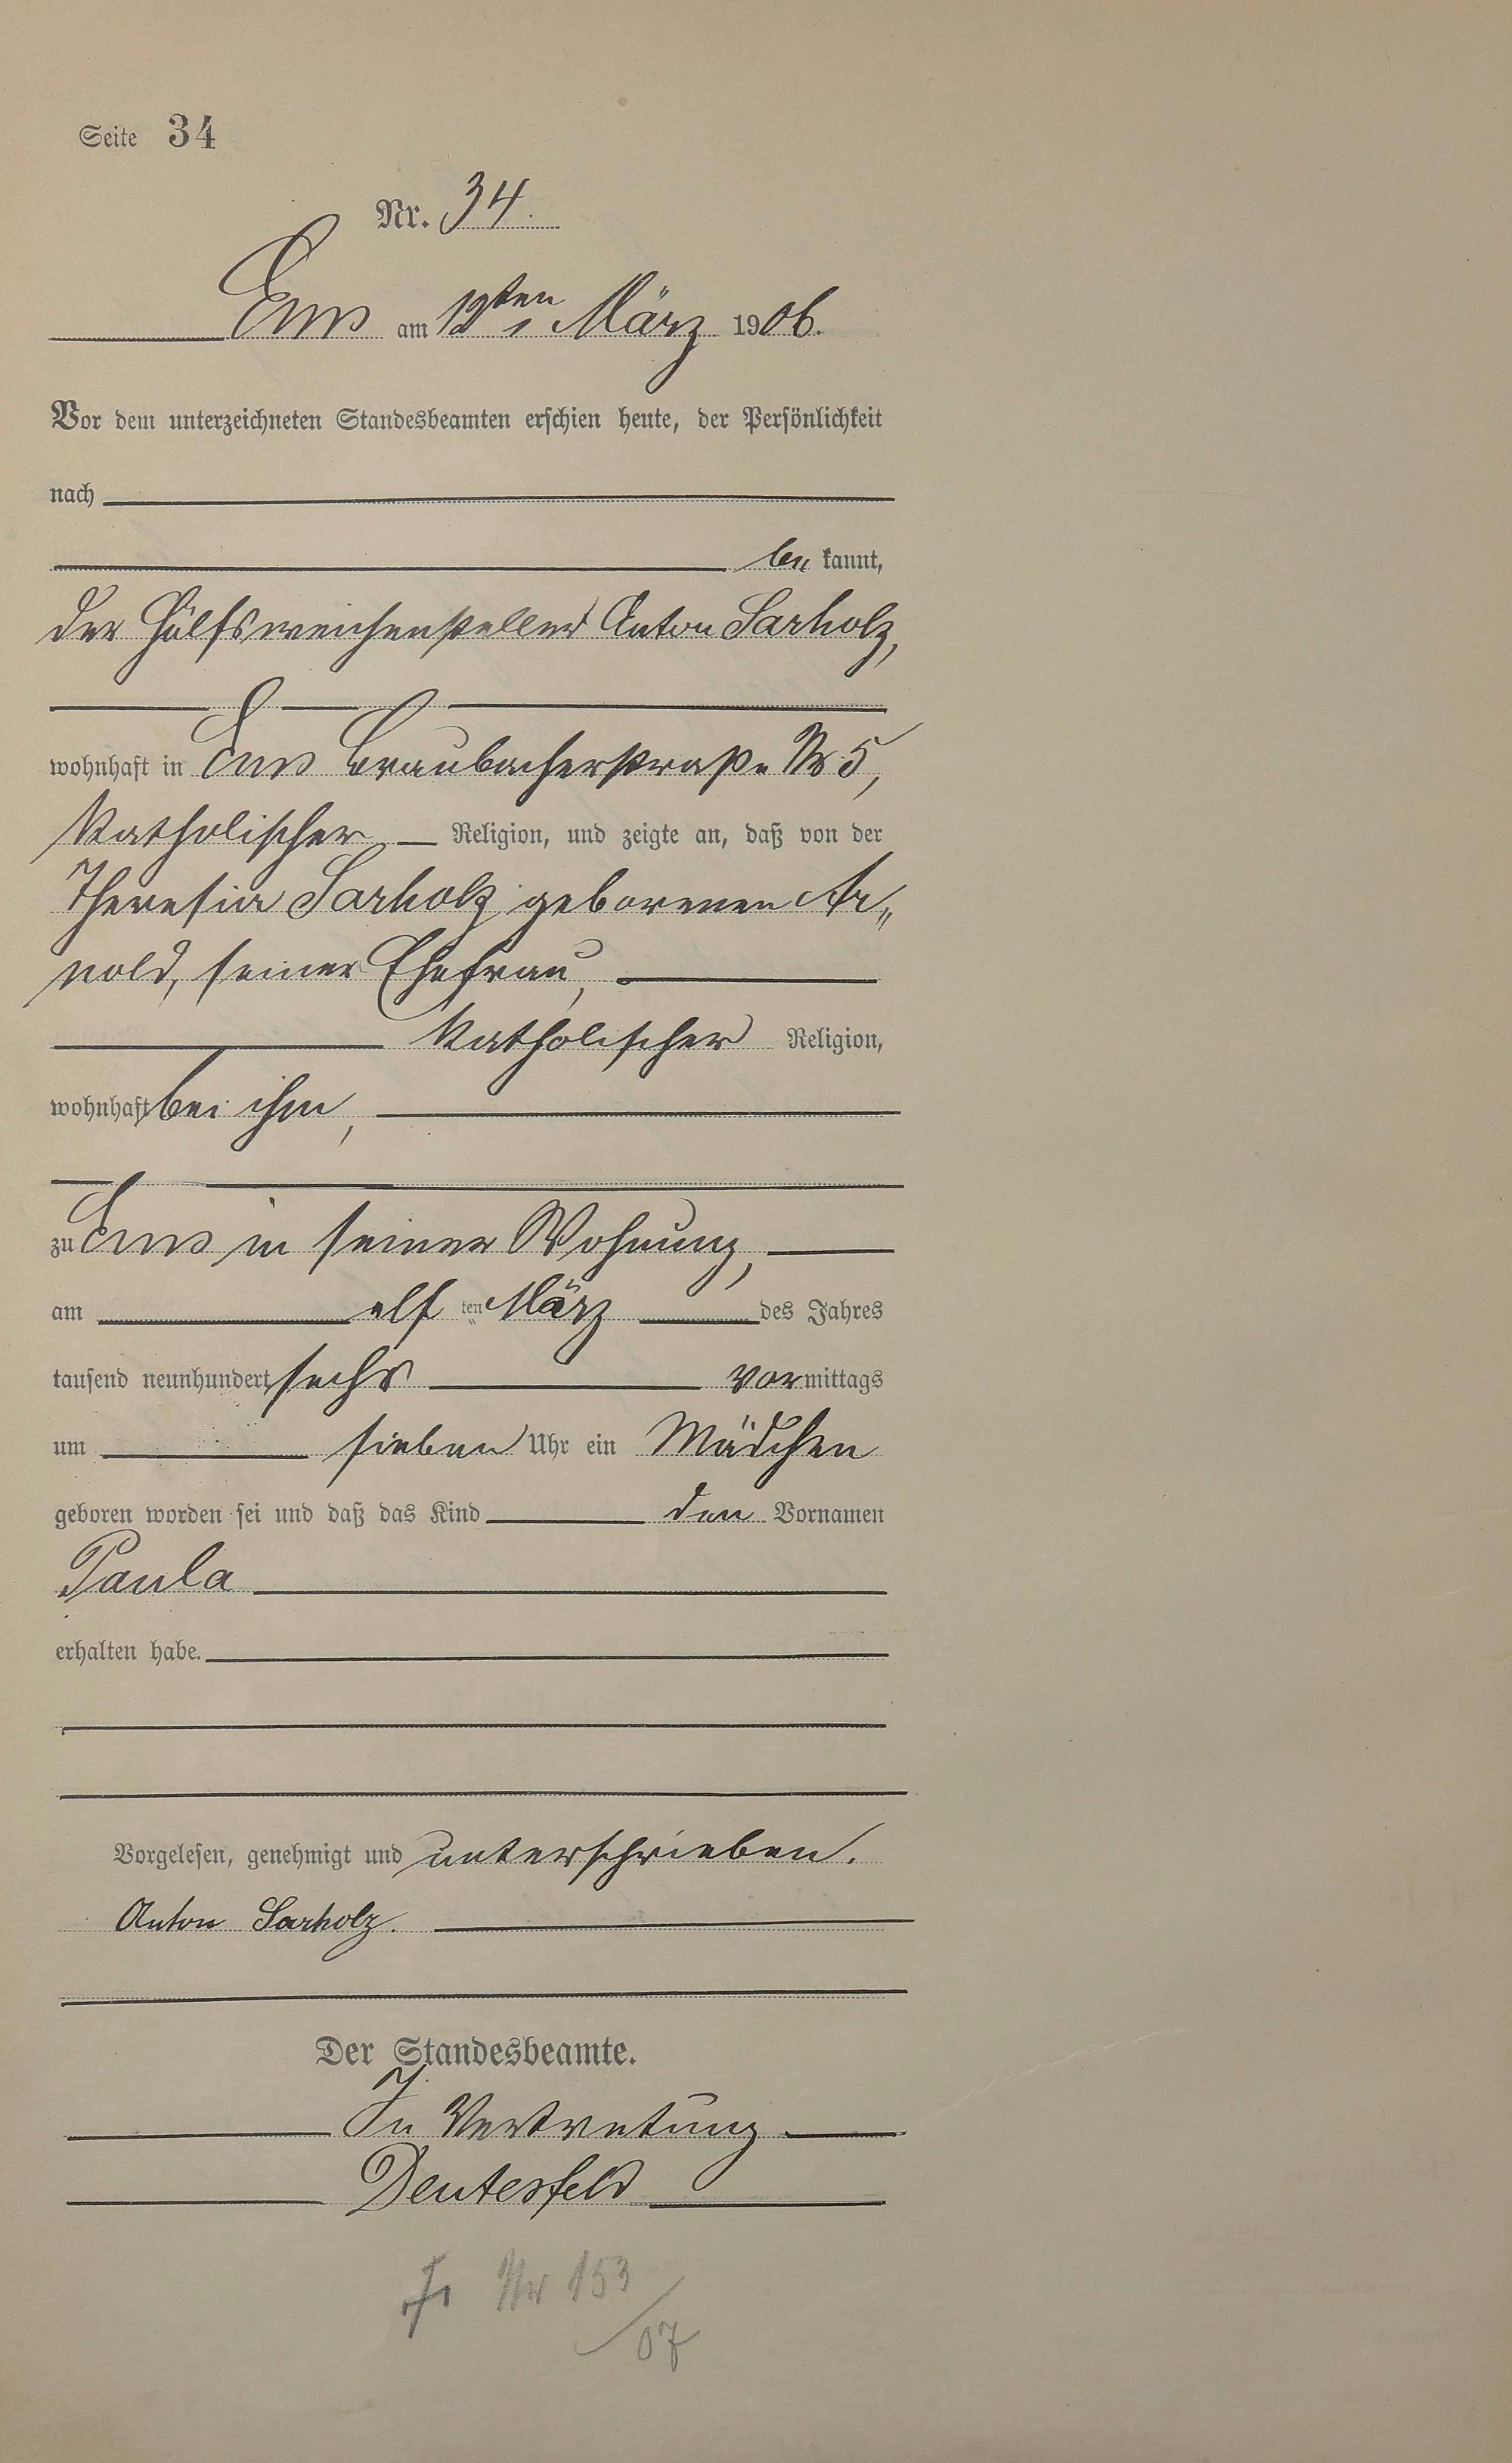 Seite 34
Nr. 34.
Ems am 12ten März 1906.
Vor dem unterzeichneten Standesbeamten erschien heute, der Persönlichkeit
nach
be kannt,
der Hülfsweichensteller Anton Sarholz,
wohnhaft in Ems Braubacherstraße Nr 5,
katholischer Religion, und zeigte an, daß von der
Theresia Sarholz geborenen Ar„
nold, seiner Ehefrau,
katholischer Religion,
wohnhaft bei ihm,
zu Ems in seiner Wohnung,
am elf ten März des Jahres
tausend neunhundert sechs vormittags
um sieben Uhr ein Mädchen
geboren worden sei und daß das Kind den Vornamen
Paula
erhalten habe.
Vorgelesen, genehmigt und unterschrieben.
Anton Sarholz.
Der Standesbeamte.
In Vertretung
Deutesfeld
Nr 153
/07